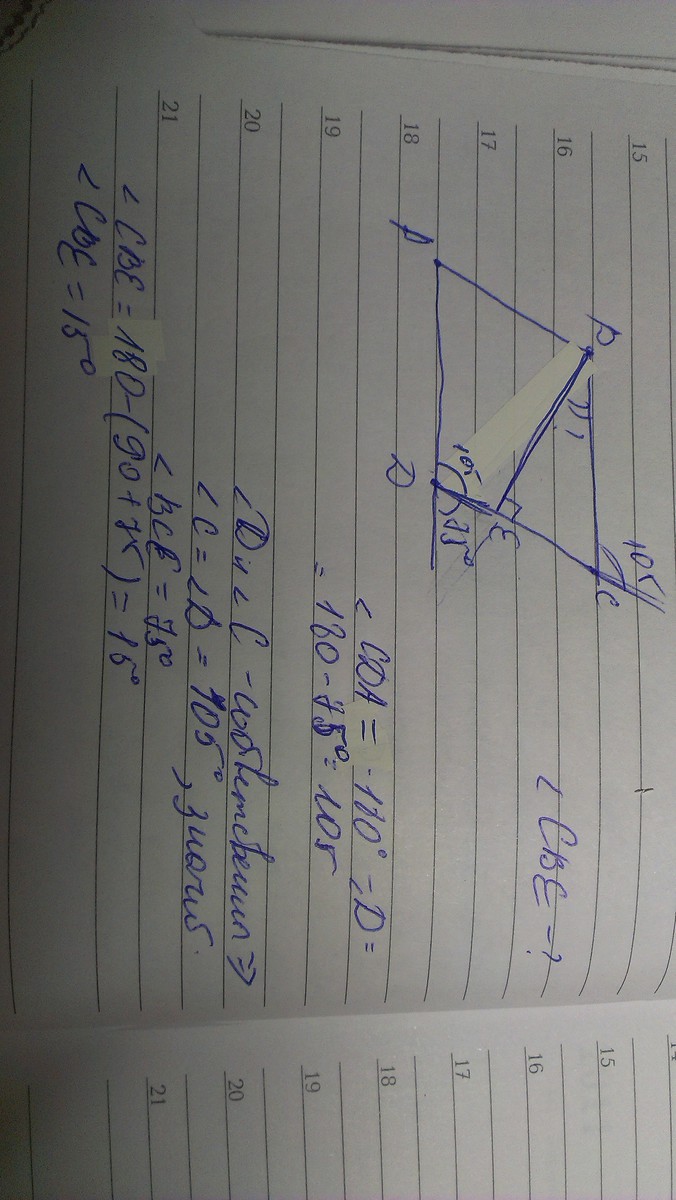 15
16
17
18
19
20
21
B
C
105
< CBE - ?
E
75°
105
A
D
< CDA = 180° - D =
= 180 - 75° = 105
< D и < C - соответственны ⇒
< C = < D = 105°, значит
< BCE = 75°
< CBE = 180 - (90 + 75) = 15°
< CBE = 15°
15
16
17
18
19
20
21